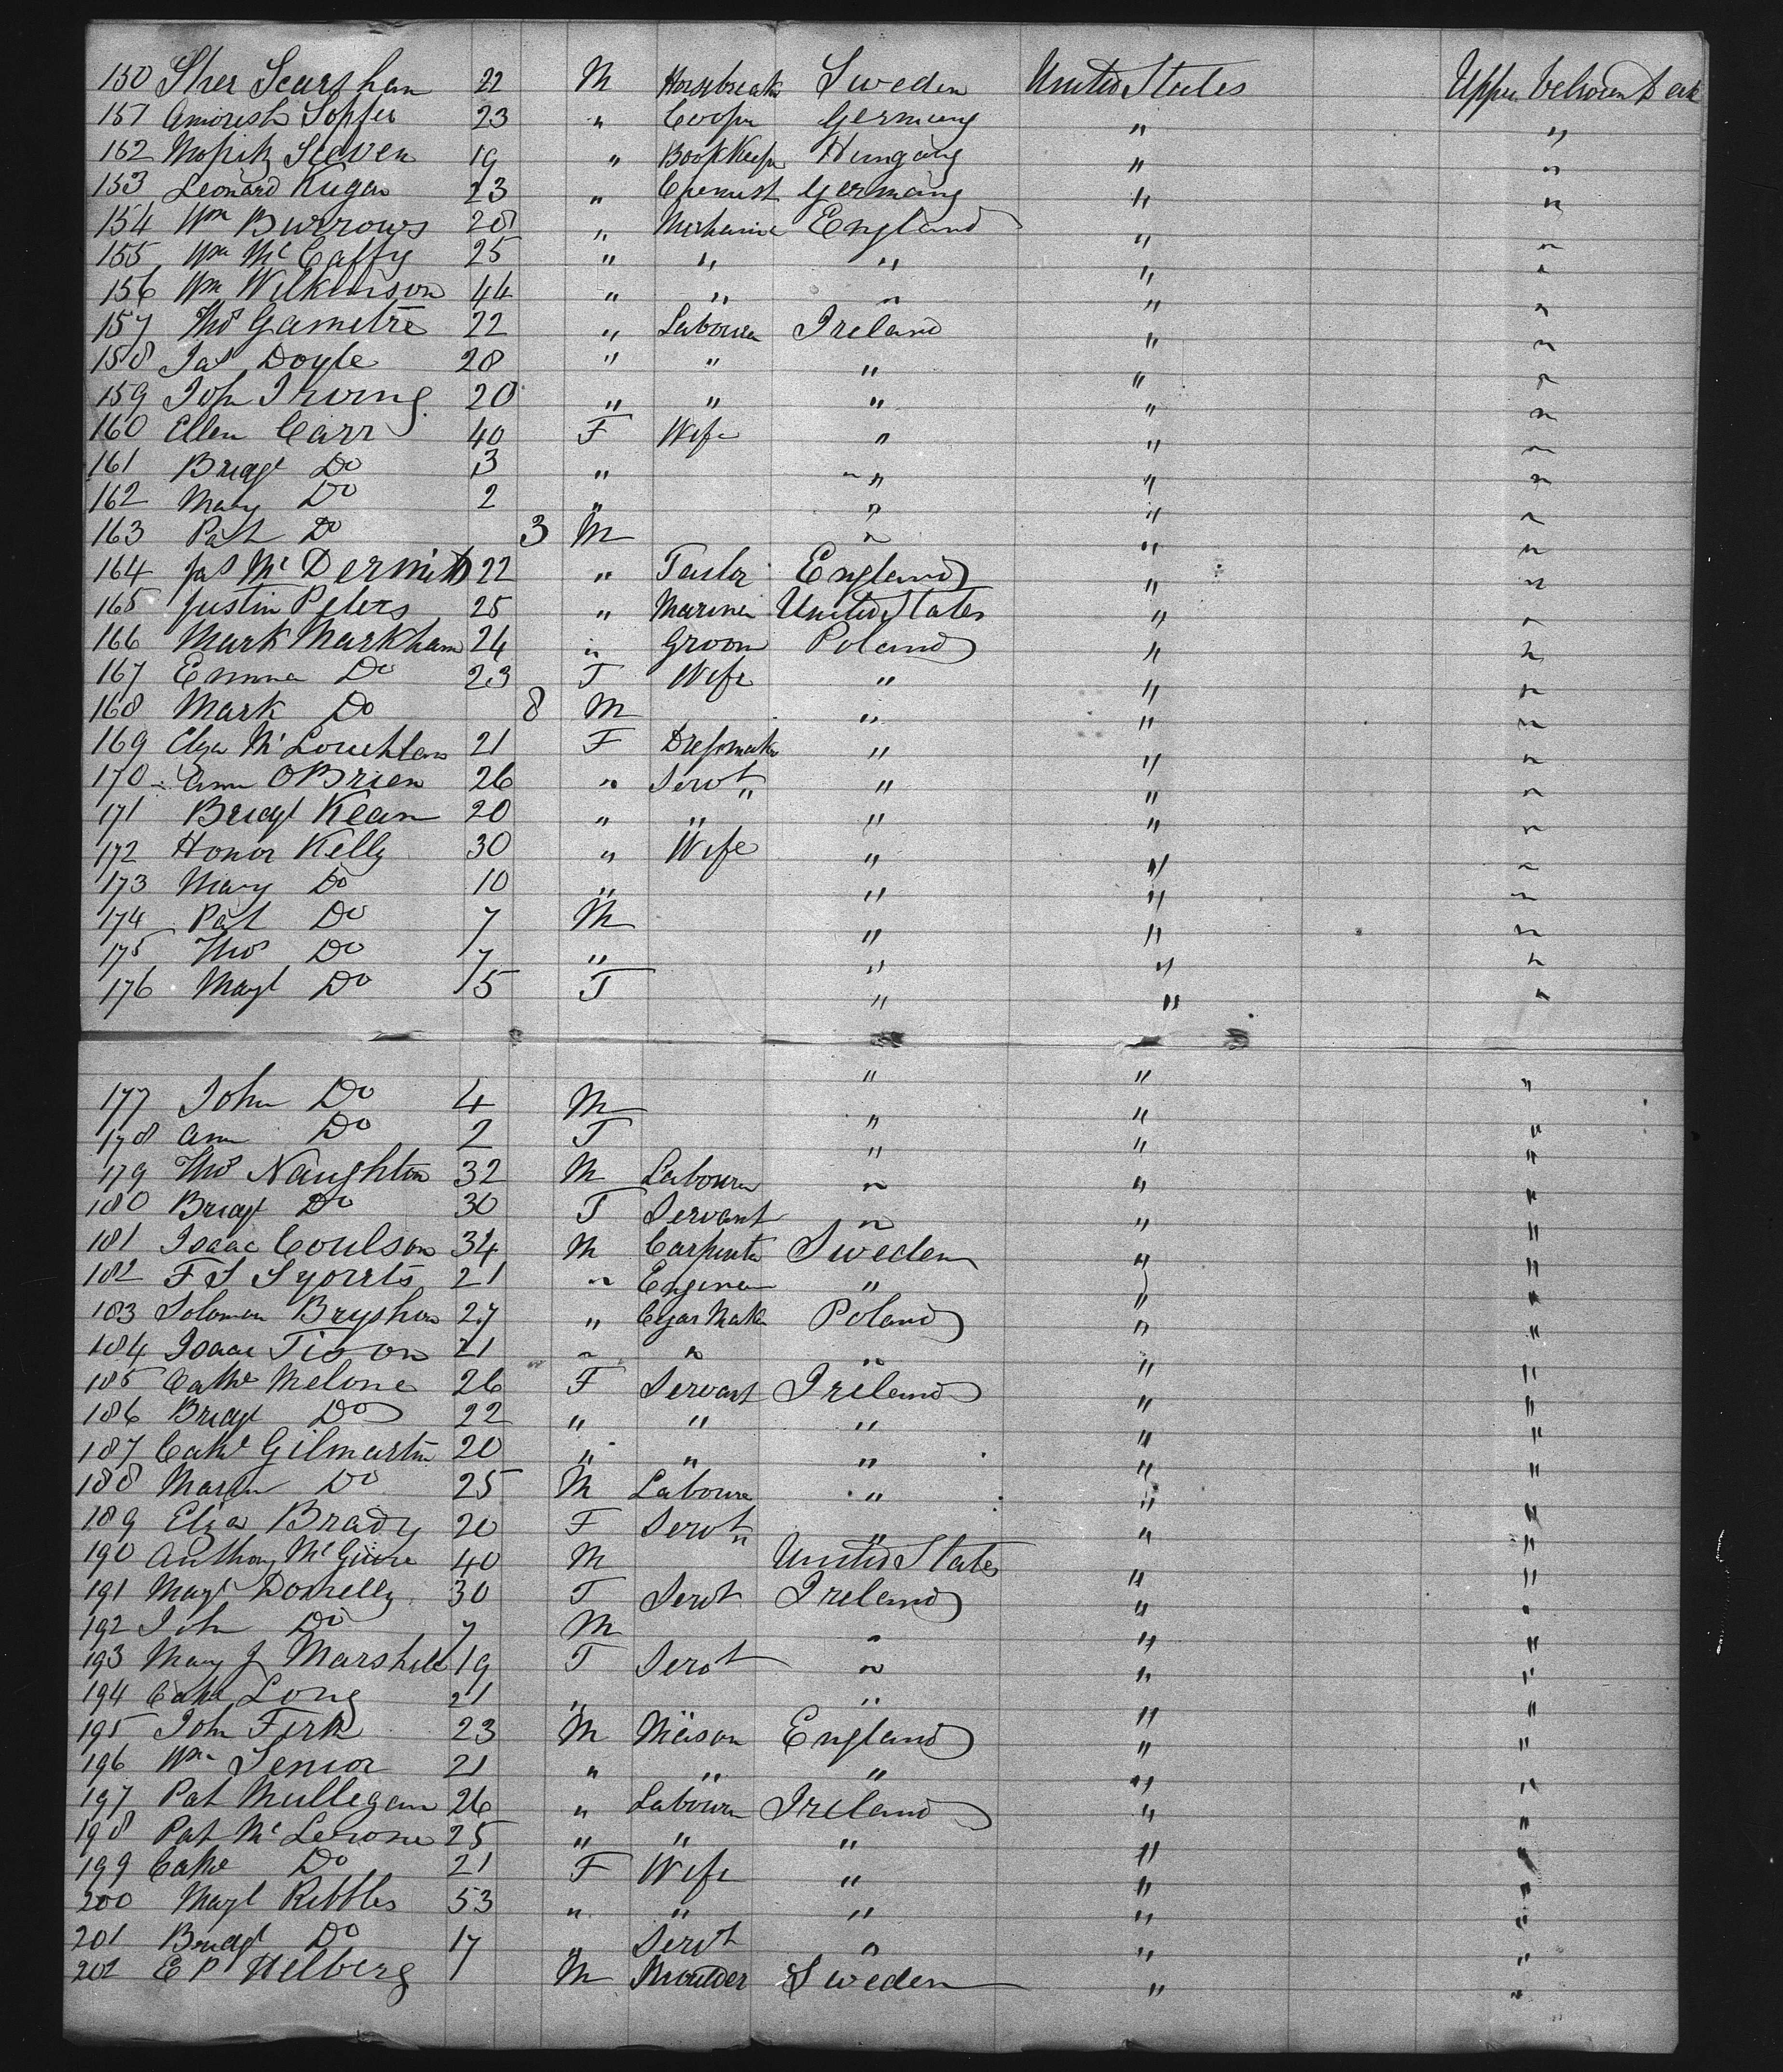 150 Sher Scarsham 22 M Horsebreaker Sweden United States Upper between Deck
151 Sopfer 23 " Cooper Germany " "
152 Moritz Sieven 19 " BookKeeper Hungary " "
153 Leonard Kugan 23 " Chemist Germany " "
154 Wm Burrows 28 " Mechanic England " "
155 Wm McCaffy 25 " " " " "
156 Wm Wilkinson 44 " " " " "
157 Thos Gametre 22 " Labourer Ireland " "
158 Jas Doyle 28 " " " " "
159 Joh Irving 20 " " " " "
160 Ellen Carr 40 F Wife " " "
161 Bridgt Do 13 " " " "
162 Mary Do 2 " " " "
163 Pat Do 3 M " " "
164 Jas McDermitt 22 " Tailor England " "
165 Justin Peters 25 " Mariner United States " "
166 Mark Markham 24 " Groom Poland " "
167 Emma Do 23 F Wife " " "
168 Mark Do 8 M " " "
169 Eliza McLouchlan 21 F Dressmaker " " "
170 Ann OBrien 26 " Servt " " "
171 Bridgt Kean 20 " " " " "
172 Honor Kelly 30 " Wife " " "
173 Mary Do 10 " " " "
174 Pat Do 7 M " " "
175 Thos Do 7 " " " "
176 Margt Do 5 F " " "
177 John Do 4 M " " "
178 Ann Do 2 F " " "
179 Thos Naughton 32 M Labourer " " "
180 Bridgt Do 30 F Servant " " "
181 Isaac Coulson 34 M Carpenter Sweden " "
182 F S Syorrts 21 " Engineer " " "
183 Solomon Bryshon 27 " Cigar Maker Poland " "
184 Isaac Tison 21 " " " " "
185 Cathe Melone 26 F Servant Ireland " "
186 Bridgt Do 22 " " " " "
187 Cathe Gilmartin 20 " " " " "
188 Martin Do 25 M Labourer " " "
189 Eliza Brady 20 F Servt " " "
190 Anthony McGuire 40 M " United States " "
191 Margt Donnelly 30 F Servt Ireland " "
192 John Do 7 M " " "
193 Mary J Marshall 19 F Servt " " "
194 Cathe Long 21 " " " "
195 John Firth 23 M Mason England " "
196 Wm Senior 21 " " " " "
197 Pat Mullegan 26 " Labourer Ireland " "
198 Pat McLerone 25 " " " " "
199 Cathe Do 21 F Wife " " "
200 Margt Ribbles 53 " " " " "
201 Bridgt Do 17 " Servt " " "
202 E P Helberg M Moulder Sweden " "